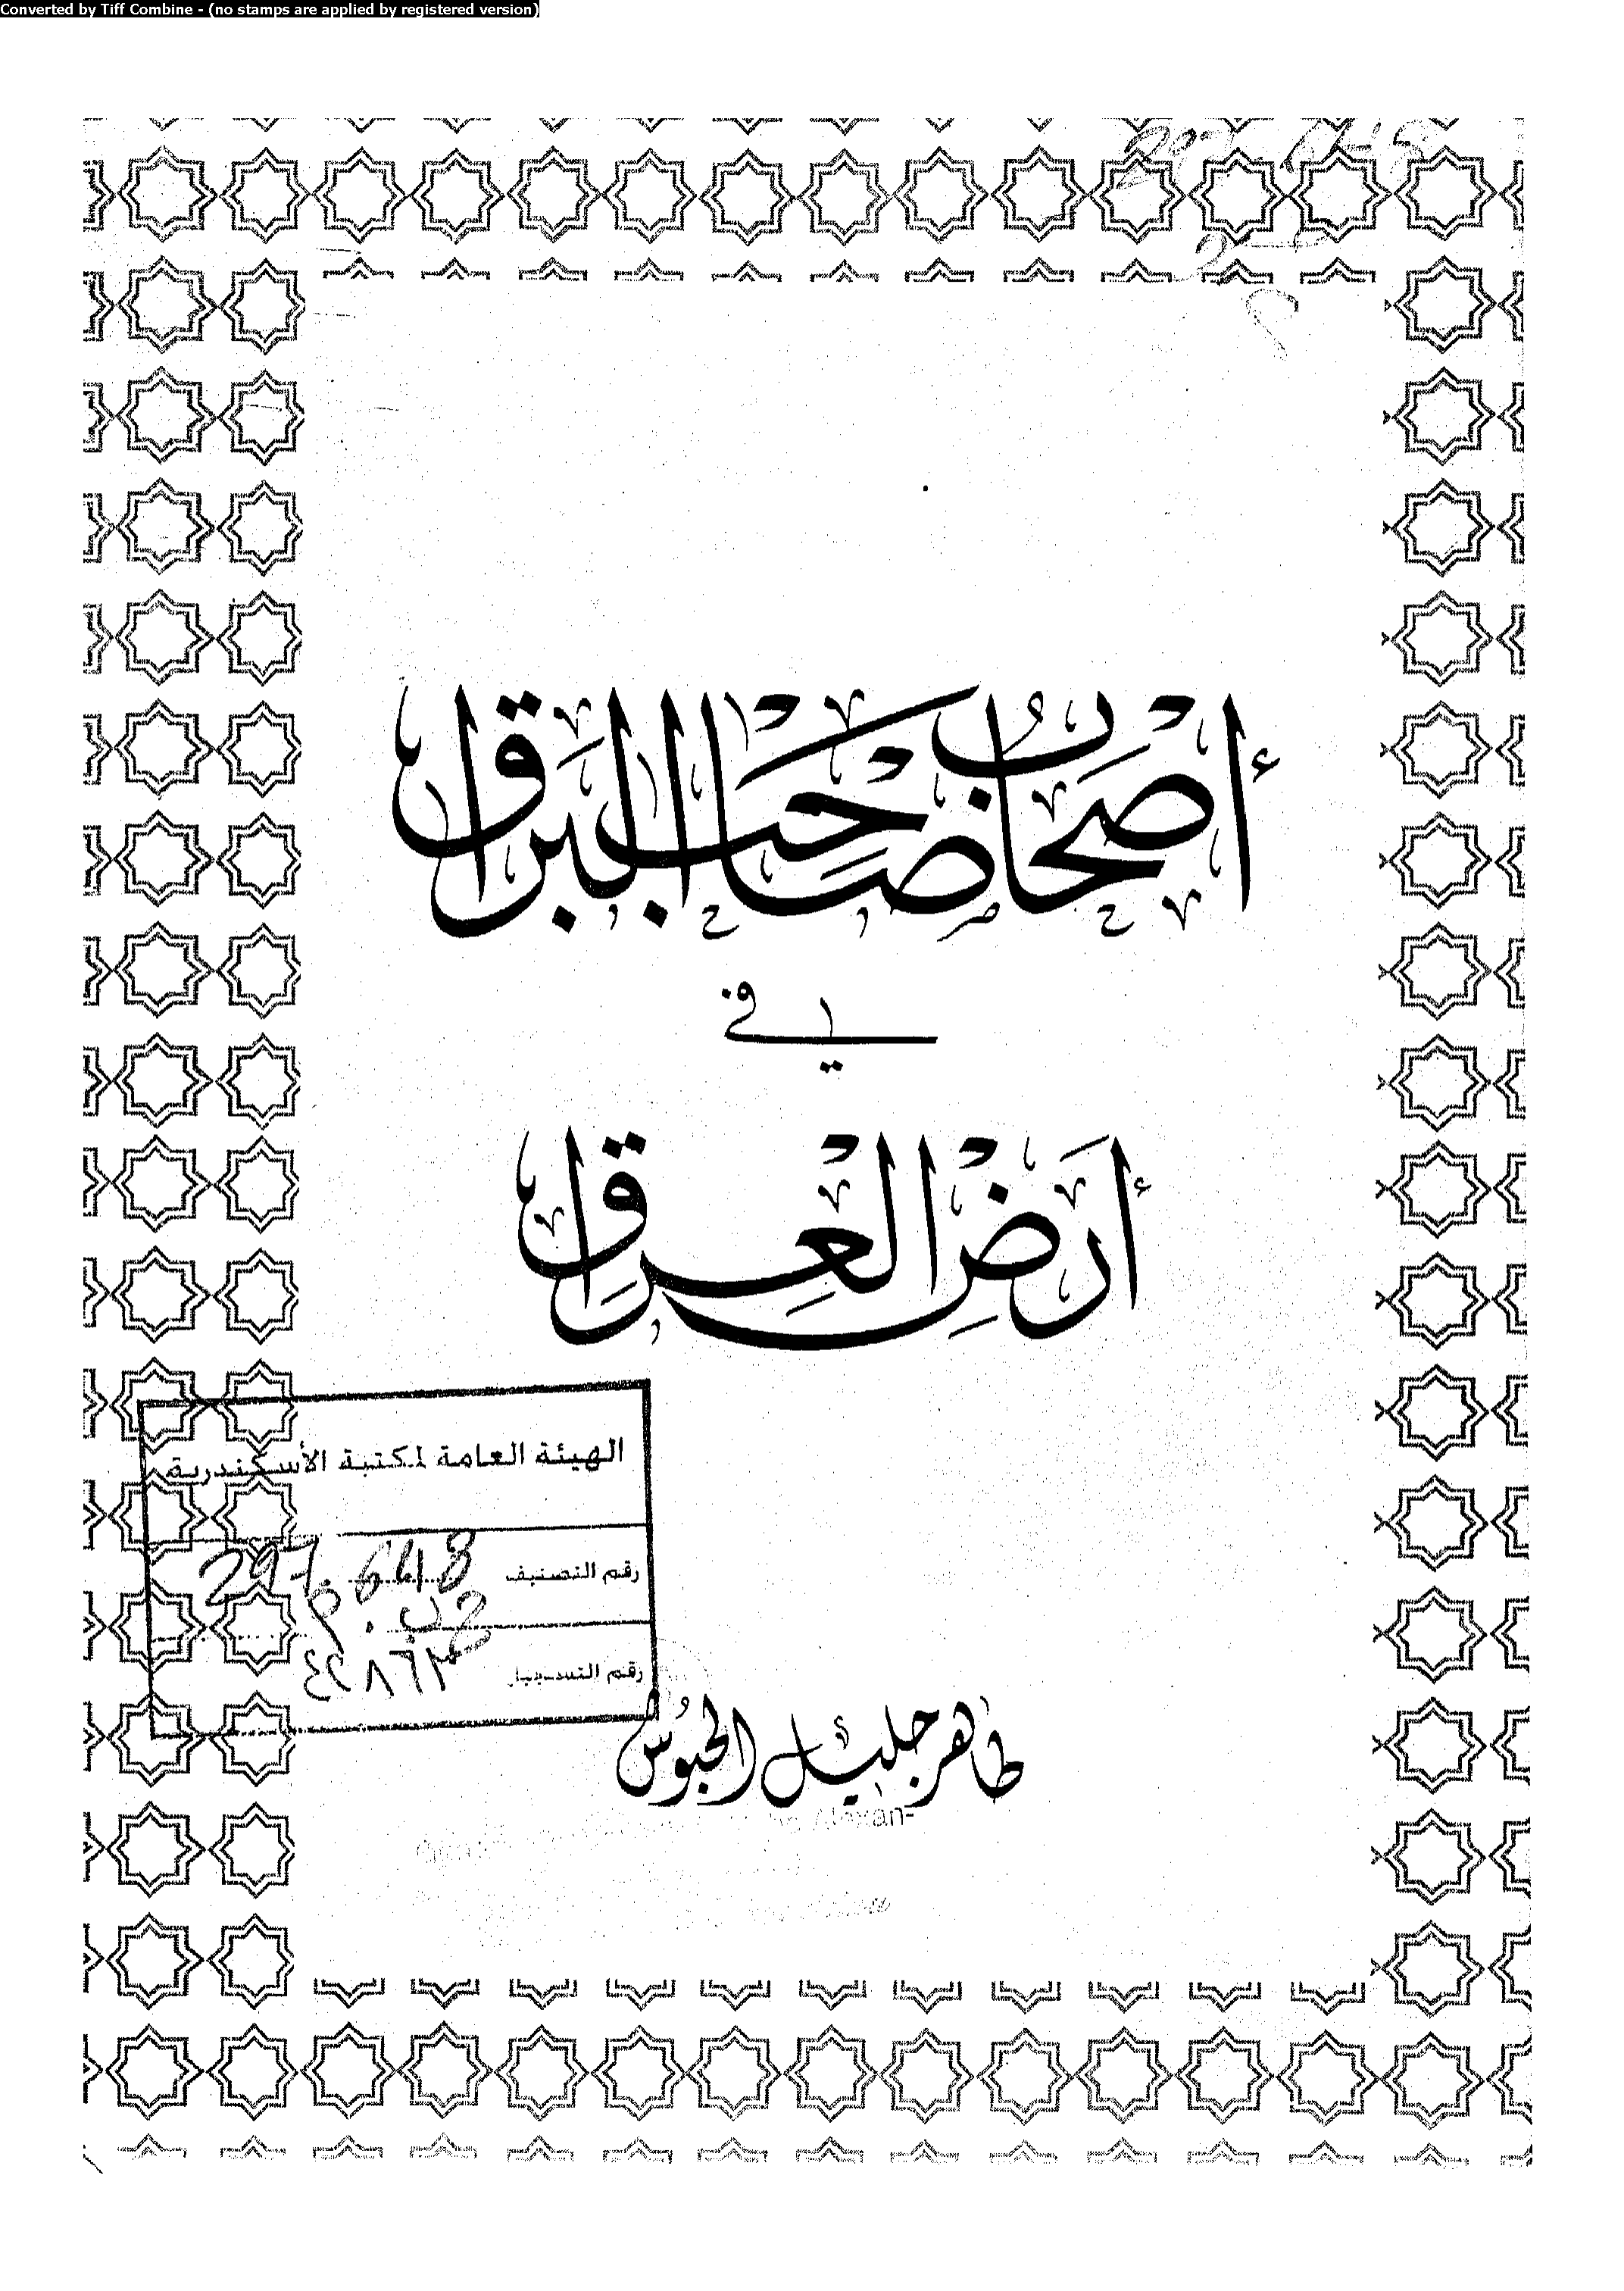 Converted by Tiff Combine - (no stamps are applied by registered version)
أصحاب صاحب البراق
في
أرض العراق
الهيئة العامة لمكتبة الأسكندرية
رقم التصنيف 297.648
رقم التسجيل ٤٢٨٦٣
طاهر جليل الحبوش